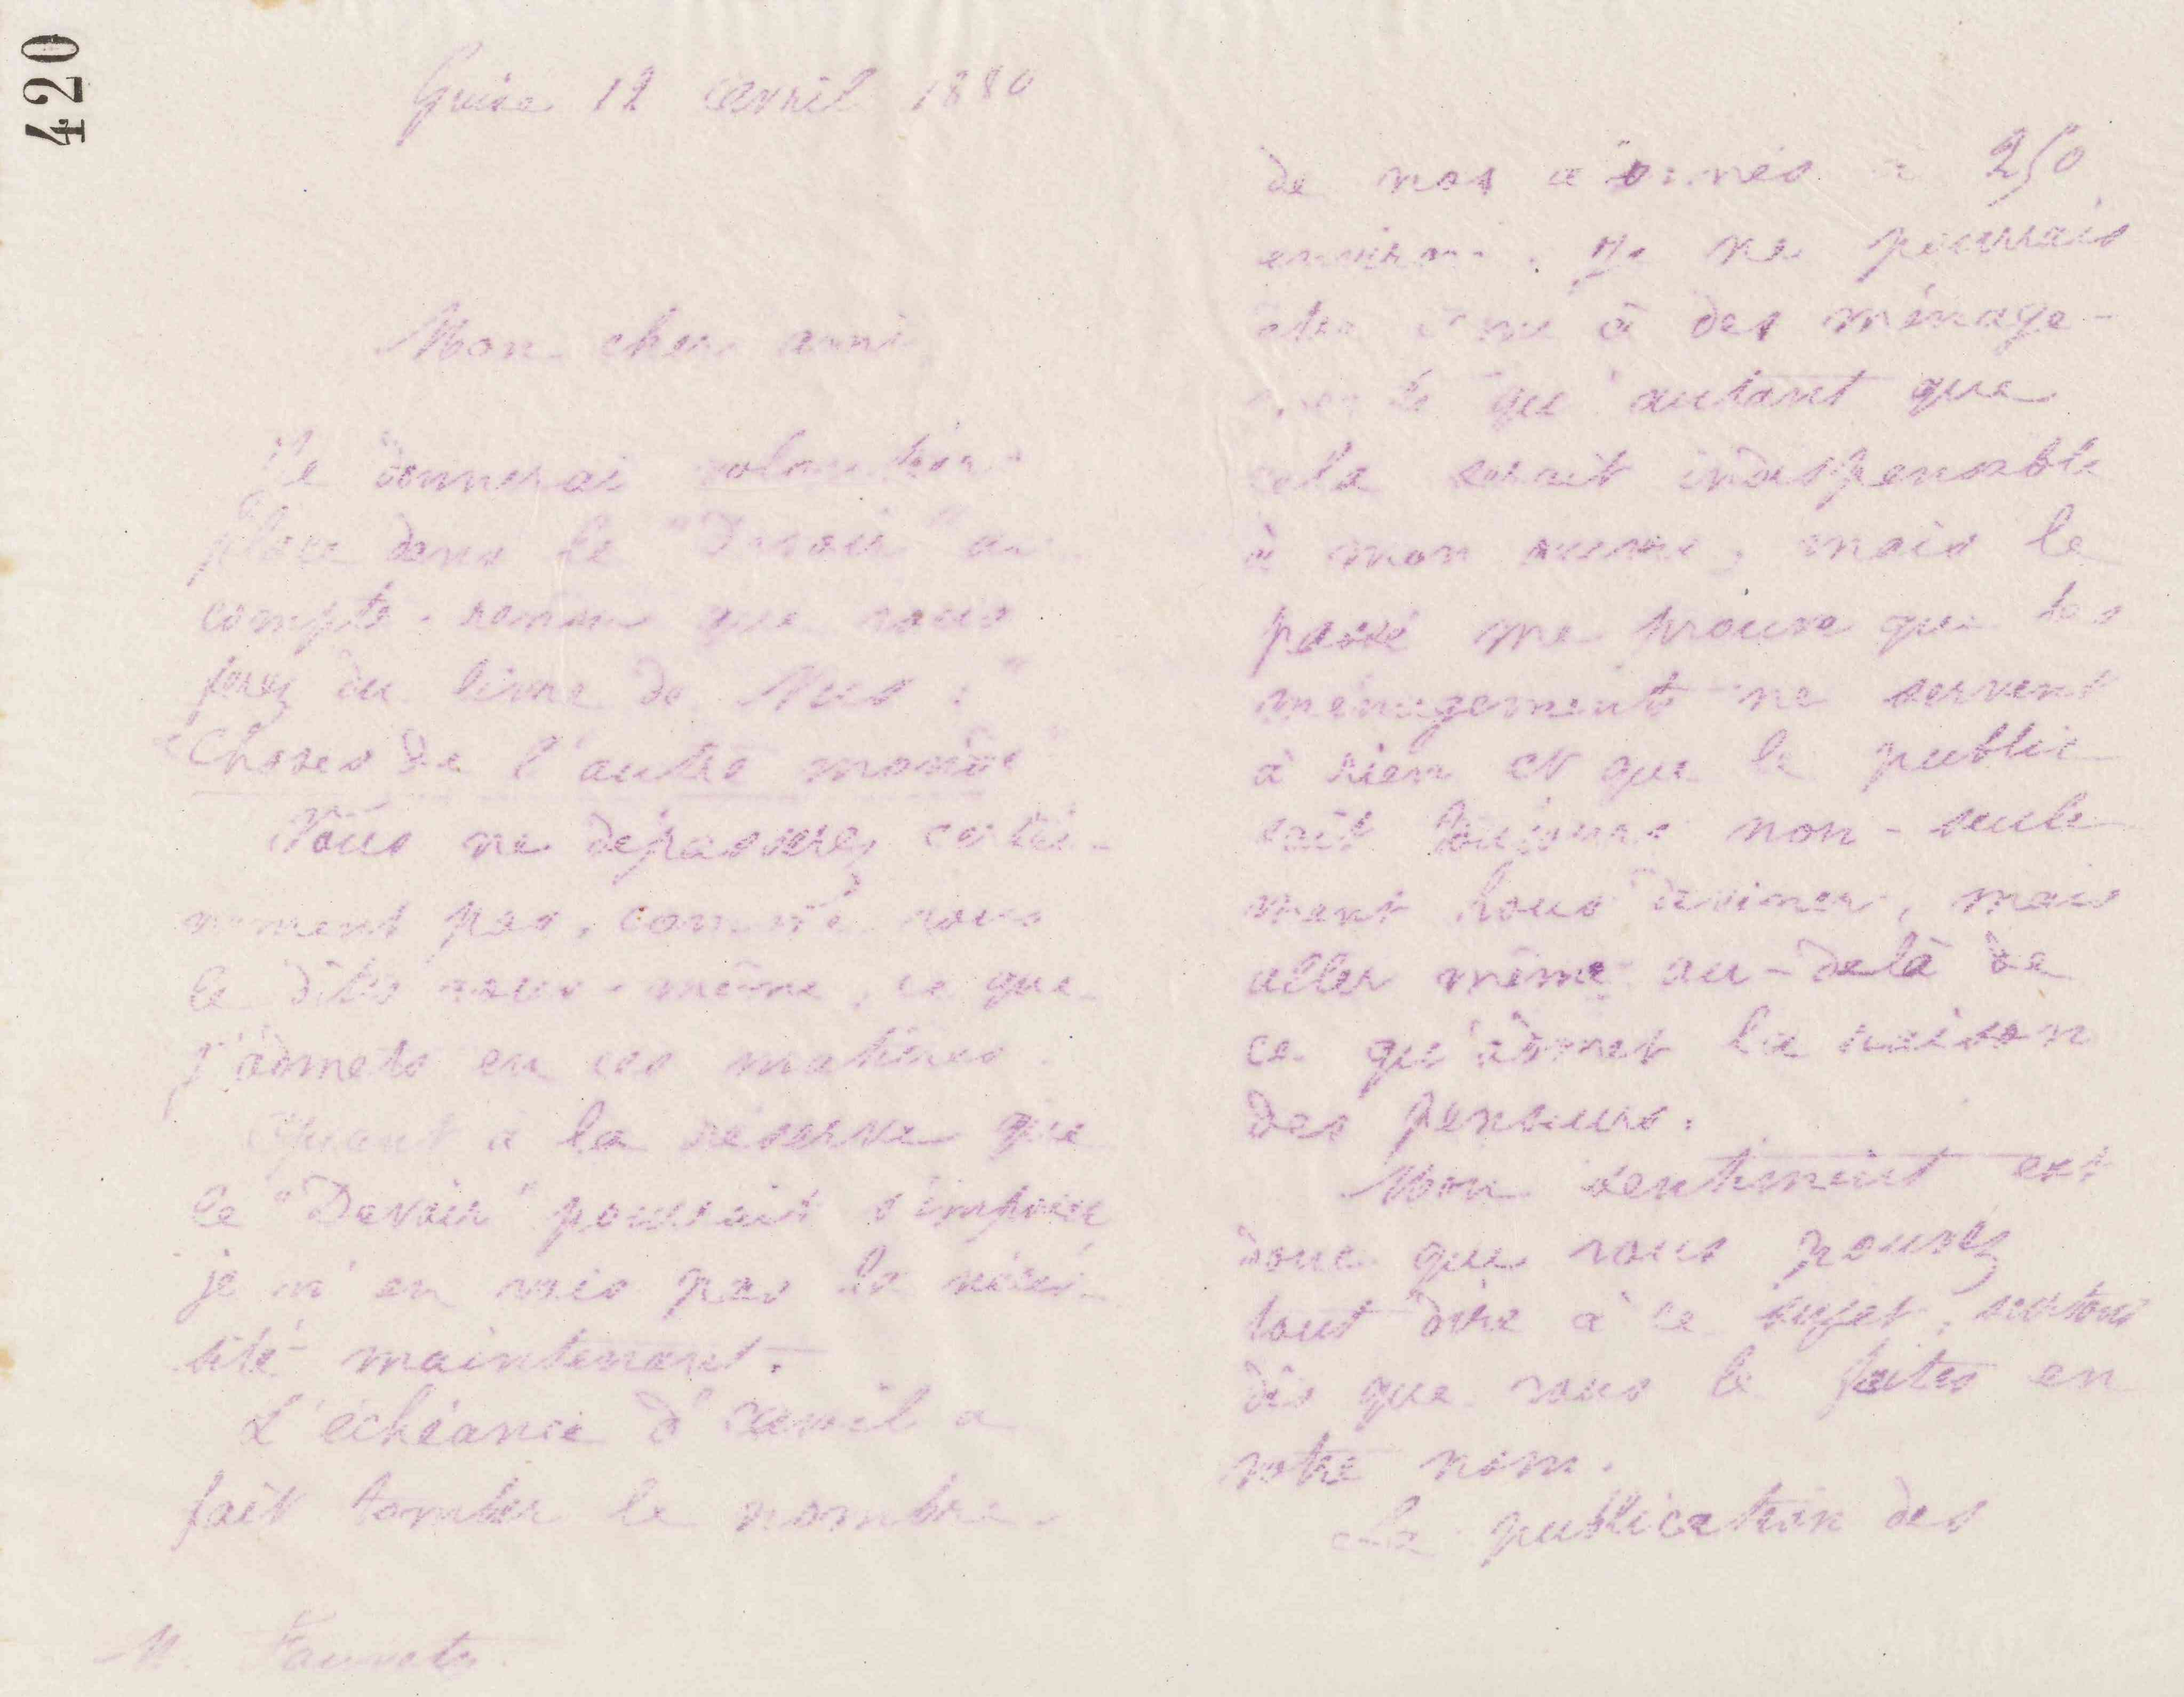 420
Guise 12 avril 1880
Mon cher ami,
Je donnerai volontiers
place dans le "Devoir" au
compte-rendu que vous
ferez du livre de Nus : "
"Choses de l'autre monde"
Vous ne dépasserez certai-
nement pas, comme vous
le dîtes vous-même, ce que
j'admets en ces matières.
Quant à la réserve que
le "Devoir" pourrait s'imposer
je n'en vois pas la néces-
sité maintenant.
L'échéance d'avril a
fait tomber le nombre
M. Fauvety.
de nos abonnés à 250
environ. Je ne pourrais
être amené à des ménage-
ments qu'autant que
cela serait indispensable
à mon œuvre, mais le
passé me prouve que les
ménagements ne servent
à rien et que le public
sait toujours non-seule
ment nous deviner, mais
aller même au-delà de
ce qu'admet la raison
des penseurs.
Mon sentiment est
donc que vous pouvez
tout dire à ce sujet, surtout
dès que vous le faites en
votre nom.
La publication des